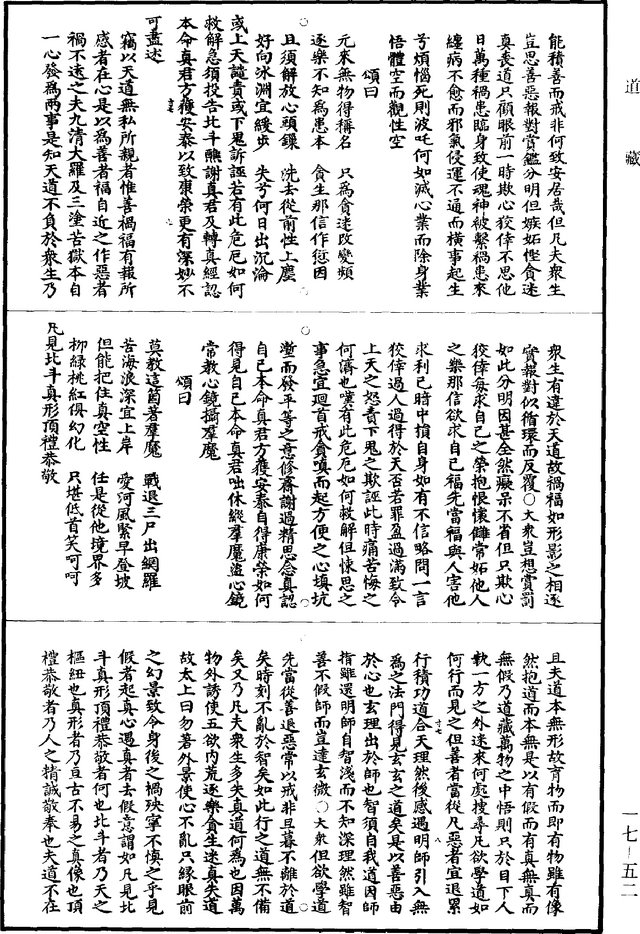 道藏
能積善而戒非何致安居哉但凡夫衆生
豈思善惡報對賞鑑分明但嫉妬慳貪迷
真喪道只顧眼前一時欺心狡倖不思他
日萬種禍患臨身致使魂神被繫禍患來
纏病不愈而邪氣侵運不通而橫事起生
兮煩惱死則波吒何如滅心業而除身業
悟體空而觀性空
頌曰
元來無物得稱名　只為貪迷改變頻
逐樂不知為患本　貪生那信作愆因
且須解放心頭鏁　洗去從前性上塵
好向冰淵宜緩步　失兮何日出沉淪
或上天譴責或下鬼訴誣若有此危厄如何
救解急須投告北斗醮謝真君及轉真經認
本命真君方獲安泰以致康榮更有深妙不
可盡述
竊以天道無私所親者惟善禍福有報所
感者在心是以為善者福自近之作惡者
禍不遠之夫九清大羅及三塗苦獄本自
一心發為兩事是知天道不負於衆生乃
衆生有違於天道故禍福如形影之相逐
實報對似循環而反覆○大衆豈想賞罰
如此分明因甚全然癡呆不省但只欺心
狡倖每求自己之榮抱恨懷讎常妬他人
之樂那信欲求自己福先當福與人害他
求利己暗中損自身如有不信略問一言
狡倖過人過得於天否若罪盈過滿致令
上天之怒責下鬼之欺誣此時痛苦悔之
何濟也嘆有此危厄如何救解但悚思之
事急宜迴首戒貪嗔而起方便之心填坑
壍而發平等之意修齋謝過精思念真認
自己本命真君方獲安泰自得康榮如何
得見自己本命真君咄休縱羣魔盜心鏡
常教心鏡攝羣魔
頌曰
莫教這箇著羣魔　戰退三尸出網羅
苦海浪深宜上岸　愛河風緊早登坡
但能把住真空性　任是從他境界多
柳綠桃紅俱幻化　只堪低首笑呵呵
凡見北斗真形頂禮恭敬
且夫道本無形故育物而即有物雖有像
然抱道而本無是以有假而有真無真而
無假乃道藏萬物之中悟則只於目下人
執一方之外迷來何處搜尋凡欲學道如
何行而見之但善者當從凡惡者宜退累
行積功道合天理然後感遇明師引入無
為之法門得見玄玄之道矣是以善惡由
於心也玄理出於師也智須自我道因師
指雖還明師自智淺而不知深理然雖智
善不假師而豈達玄微○大衆但欲學道
先當從善退惡常以戒非旦暮不離於道
矣時刻不亂於智矣如此行之道無不備
矣又乃凡夫衆生多失真道何為也因萬
物外誘使五欲內荒逐樂貪生迷真失道
故太上曰勿著外景使心不亂只緣眼前
之幻景致令身後之禍殃寧不懊之乎見
假者起真心遇真者去假意謂如凡見北
斗真形頂禮恭敬者何也北斗者乃天之
樞紐也真形者乃亘古不易之真像也頂
禮恭敬者乃人之精誠敬奉也夫道不在
一七—五二